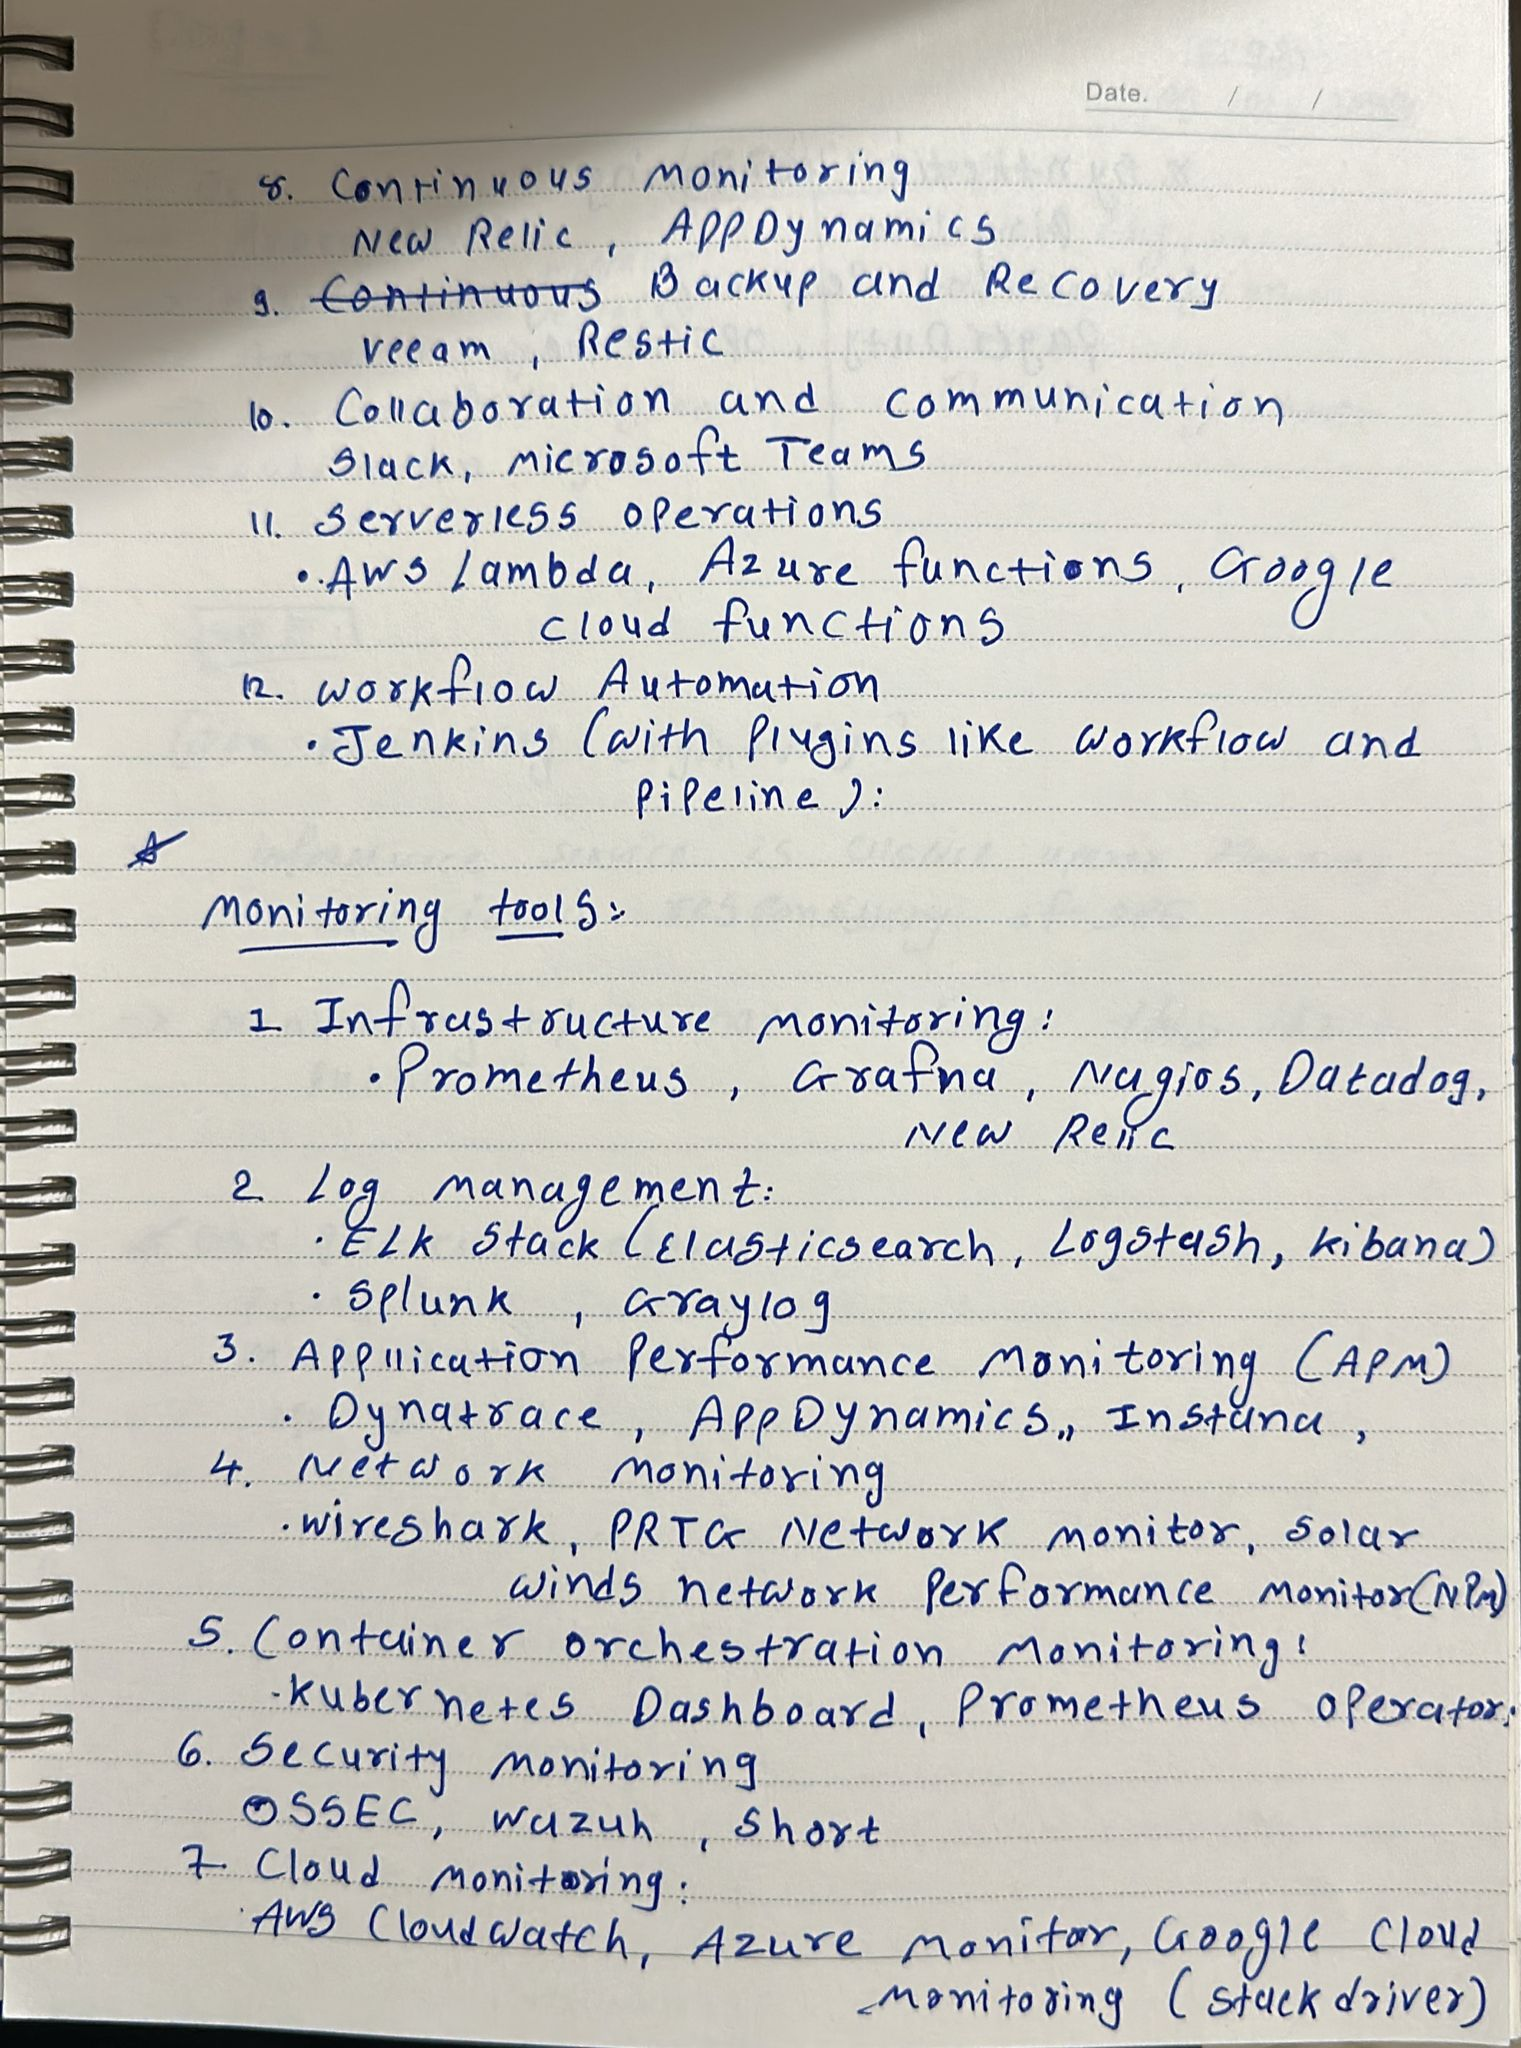 Date. / /
8. Continuous Monitoring
New Relic, AppDynamics
9. Continuous Backup and Recovery
veeam, Restic
10. Collaboration and communication
Slack, Microsoft Teams
11. Serverless operations
• AWS Lambda, Azure functions, Google
cloud functions
12. Workflow Automation
• Jenkins (with Plugins like Workflow and
Pipeline):
Monitoring tools:
1 Infrastructure monitoring:
• Prometheus, Grafna, Nagios, Datadog,
New Relic
2 Log management:
• ELK Stack (Elasticsearch, Logstash, Kibana)
• Splunk, Graylog
3. Appllication Performance Monitoring (APM)
• Dynatrace, AppDynamics,, Instana,
4. Network monitoring
• Wireshark, PRTG Network monitor, Solar
winds network Performance Monitor(NPM)
5. Container orchestration Monitoring:
- Kubernetes Dashboard, Prometheus operator:
6. Security Monitoring
OSSEC, Wazuh, Short
7 Cloud monitoring:
• AWS CloudWatch, Azure Monitor, Google Cloud
Monitoring (stackdriver)